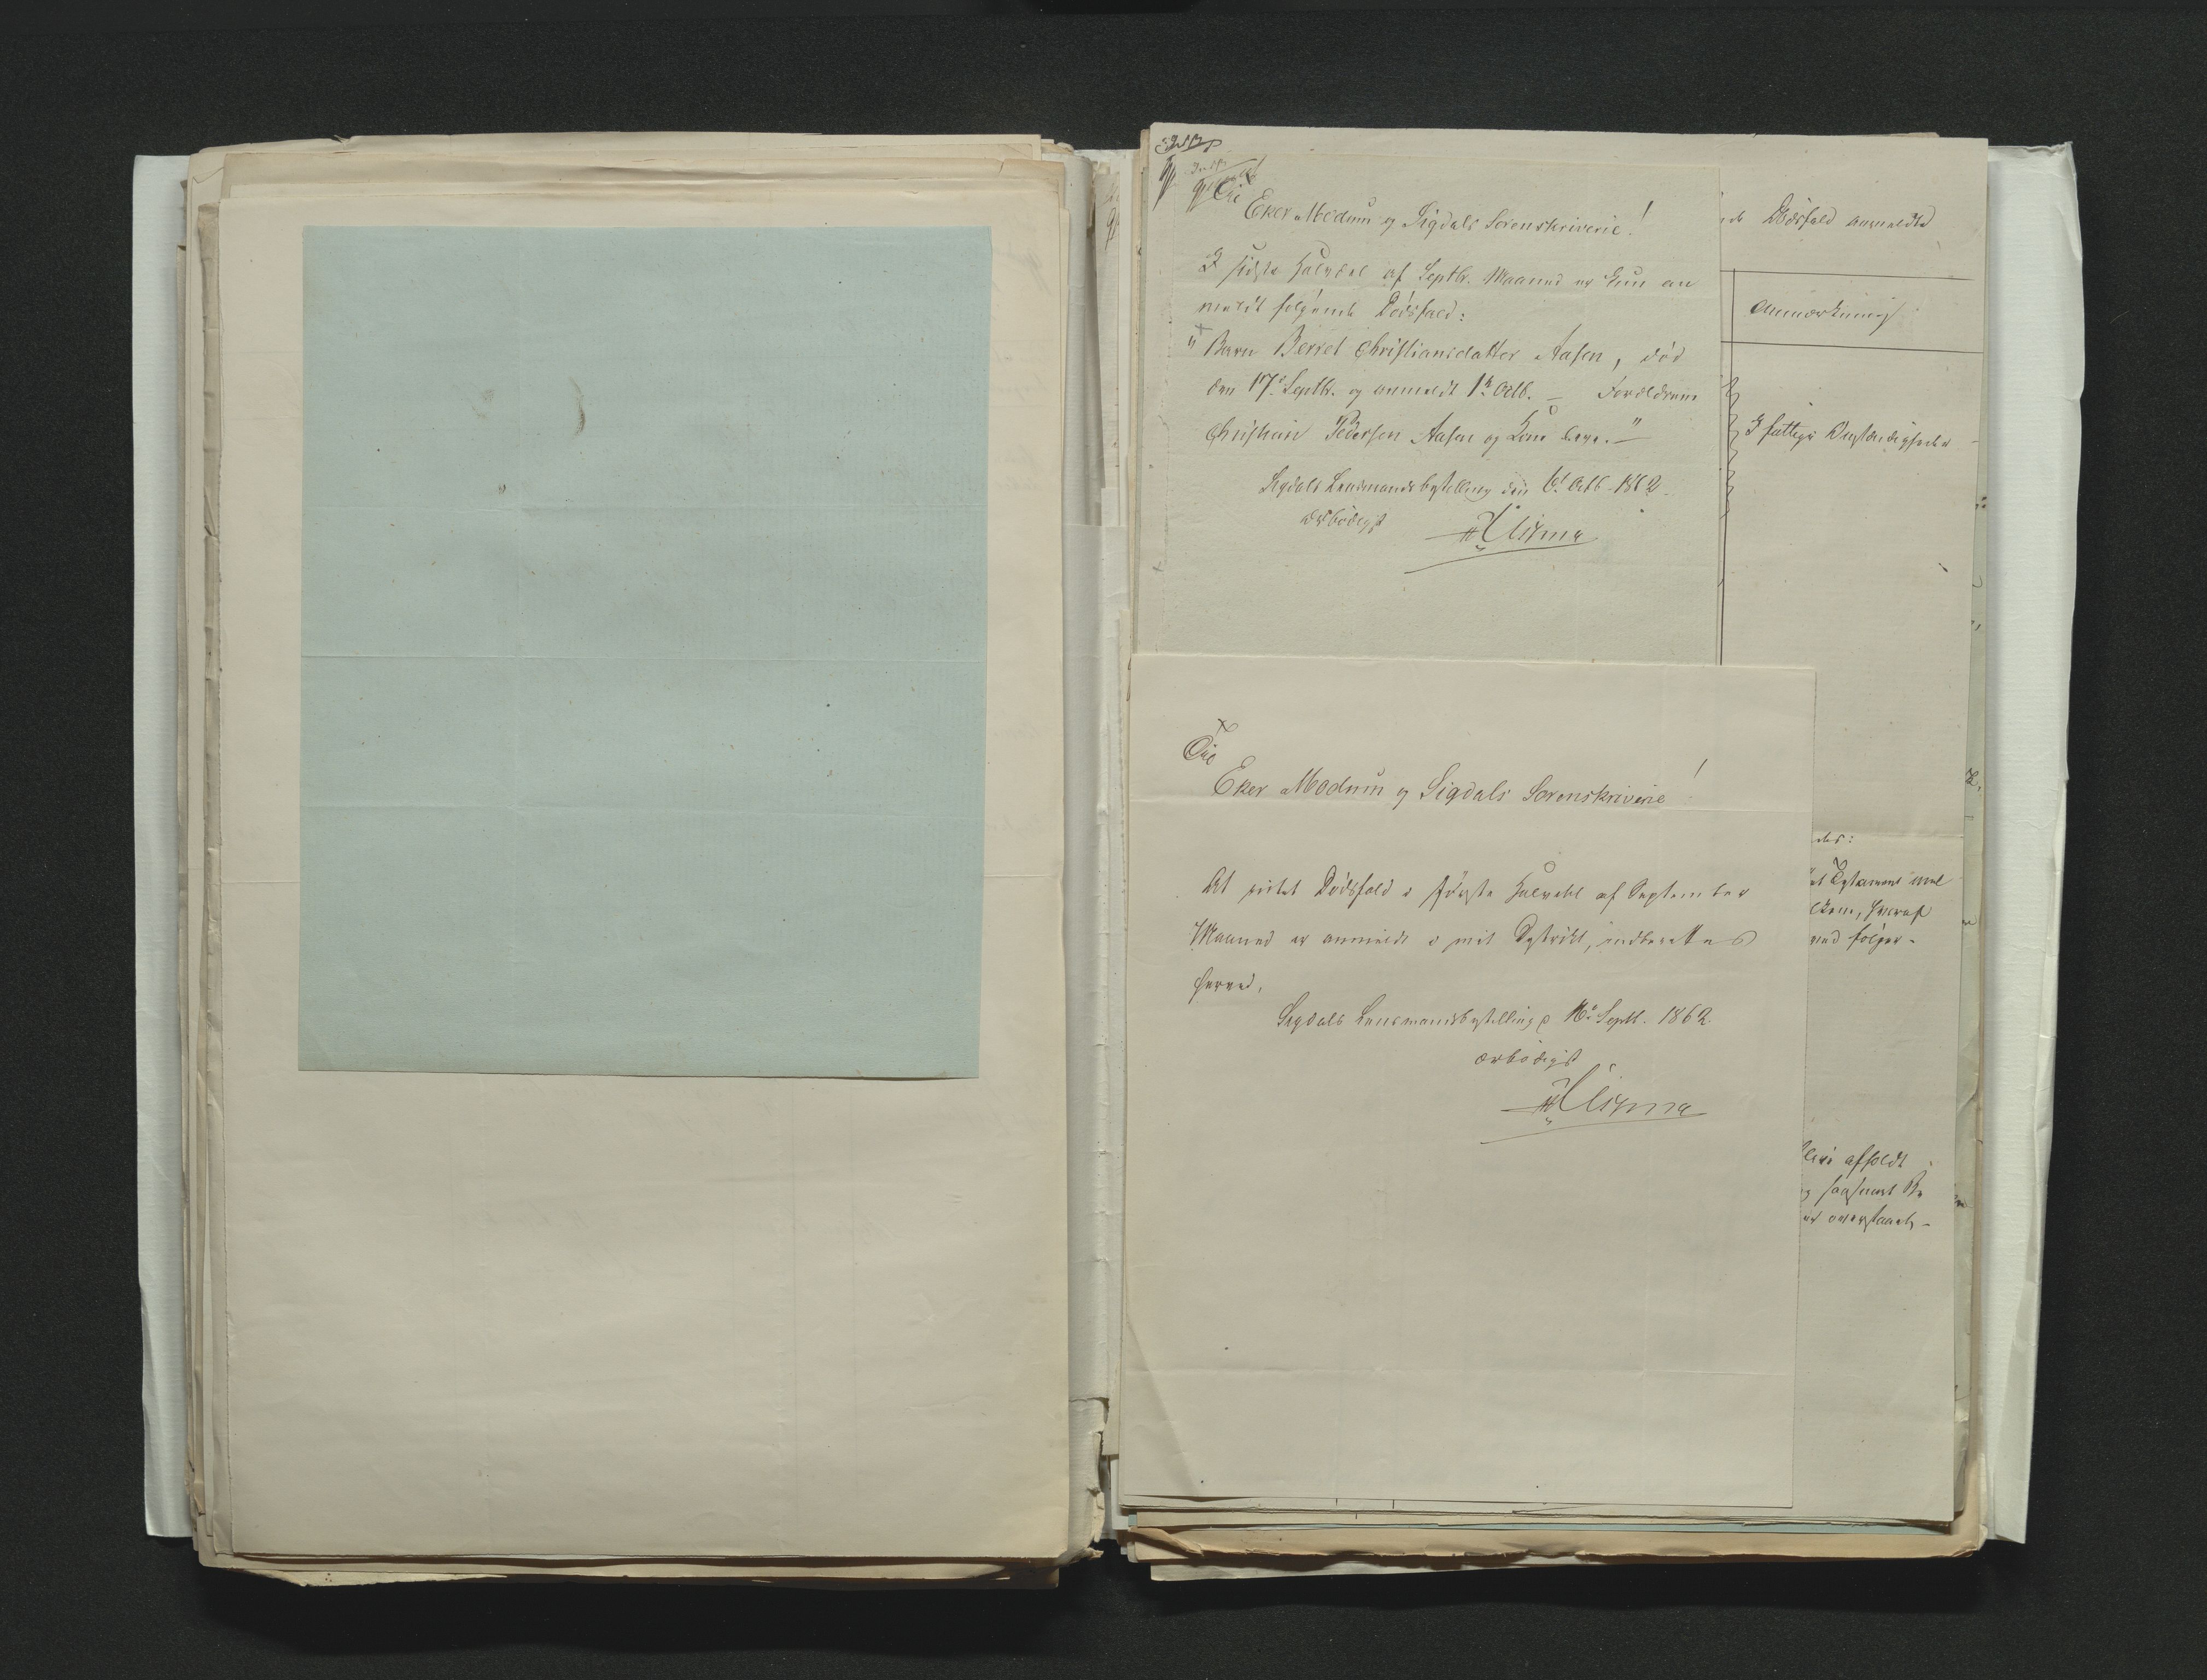 Til
Eker Modum og Sigdals Sorenskriverie!
I sidste Halvdel af Septbr. Maaned er kun an
meldt følgende Dødsfald:
" Barn Berret Christiansdatter Aasen, død
den 17de Septbr. og anmeldt 1ste Octb. – Forældrene
Christian Pedersen Aasen og Kone "–
Sigdals Lensmandsbestilling den 6te Octb. 1862.
ærbødigst
Dødsfald anmeldte
Anmærkning
I fattige Omstændigheder
Til
Eker Modum og Sigdals Sorenskriverie!
At intet Dødsfald i første Halvdel af September
Maaned er anmeldt i mit Distrikt, indberettes
herved.
Sigdals Lensmandsbestilling d 16de Septb. 1862.
ærbødigst
Testamente
hvoraf
følger.
afholdt